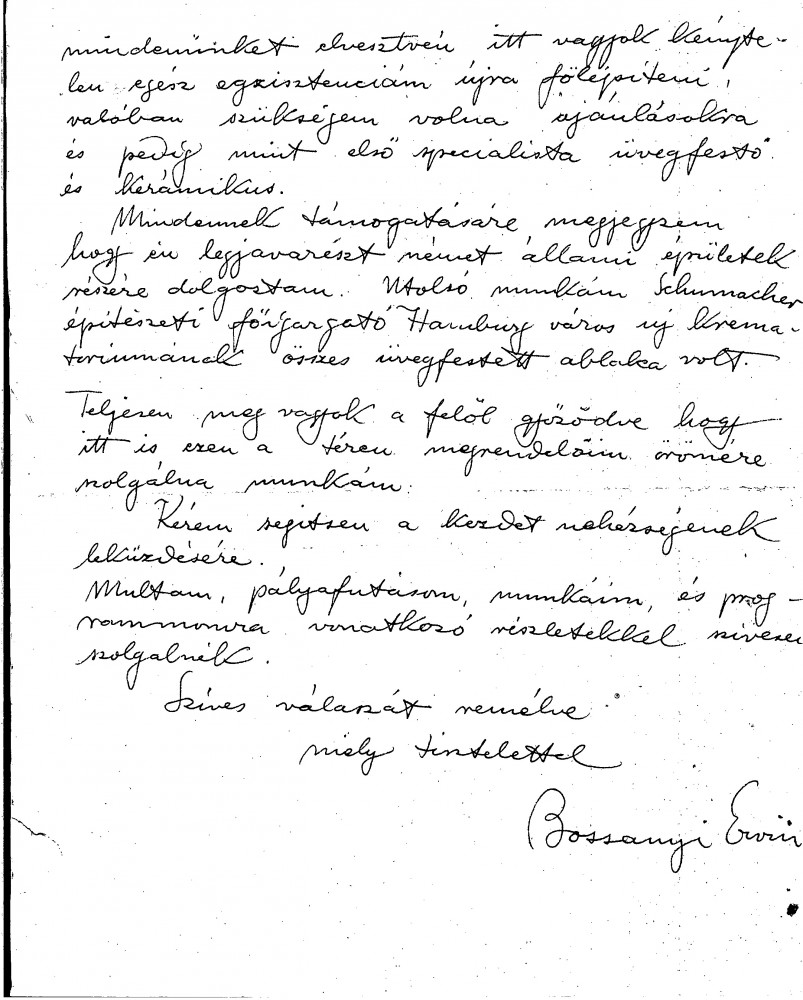 mindenünket elvesztvén itt vagyok kényte-
len egész egzisztenciám újra fölépíteni,
valóban szükségem volna ajánlásokra
és pedig mint első specialista üvegfestő
és kerámikus.
Mindennek támogatásáre megjegyzem
hogy én legjavarészt német állami épületek
részére dolgoztam. Utolsó munkám Schumacher
építészeti főigazgató Hamburg város új krema-
toriumának összes üvegfestett ablaka volt.
Teljesen meg vagyok a felől győződve hogy
itt is ezen a téren megrendelőim örömére
szolgálna munkám.
Kérem segitsen a kezdet nehézségének
leküzdésére.
Multam, pályafutásom, munkáim, és prog-
rammomra vonatkozó részletekkel szivesen
szolgálnék.
Szíves válaszát remélve
mély tisztelettel
Bossanyi Ervin